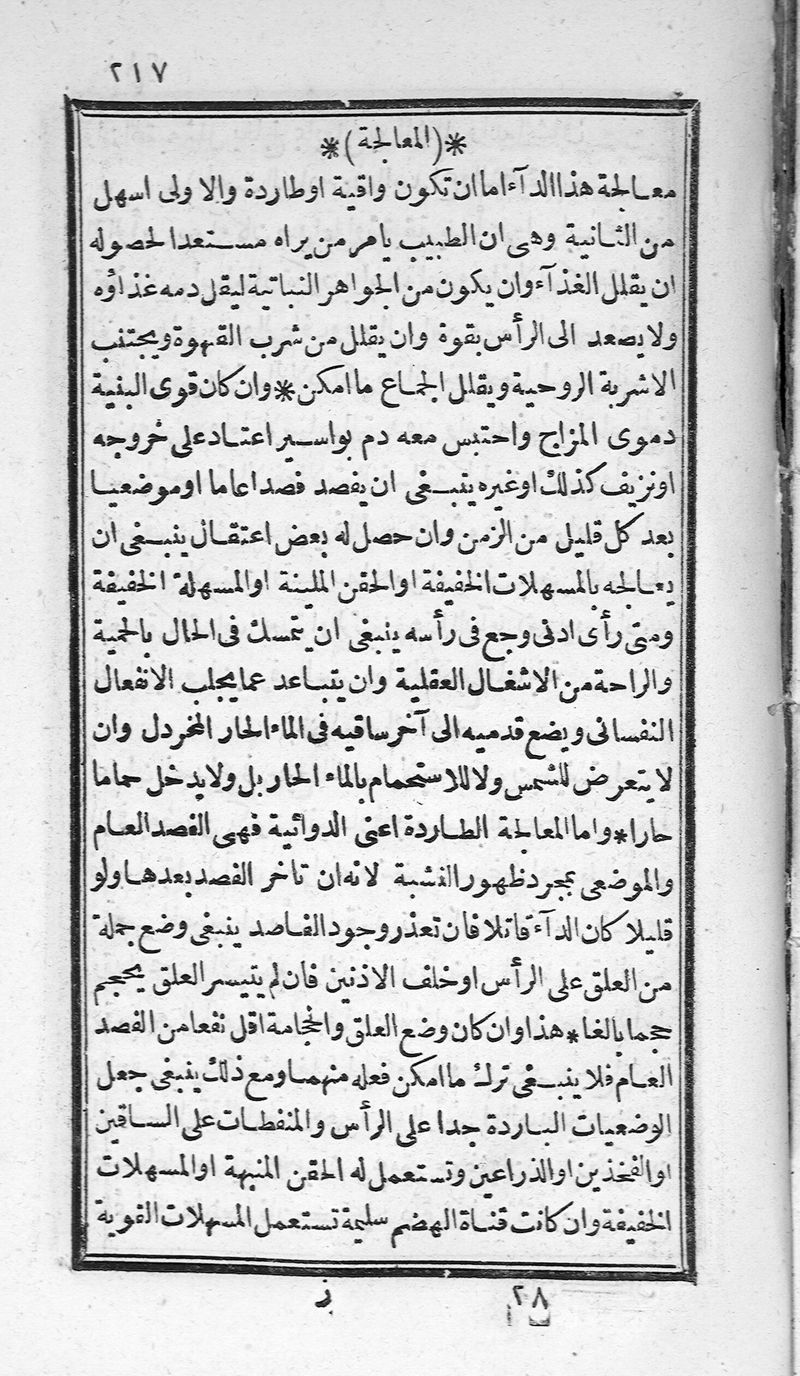 ٢١٧
*(المعالجة)*
معالجة هذا الدآء اما ان تكون واقية او طاردة والاولى اسهل
من الثانية وهى ان الطبيب يامر من يراه مستعدا لحصوله
ان يقلل الغذآء وان يكون من الجواهر النباتية ليقل دمه غذاؤه
ولا يصعد الى الرأس بقوة وان يقلل من شرب القهوة ويجتنب
الاشربة الروحية ويقلل الجماع ما امكن * وان كان قوى البنية
دموى المزاج واحتبس معه دم بواسير اعتاد على خروجه
او نزيف كذلك او غيره ينبغى ان يفصد فصدا عاما او موضعيا
بعد كل قليل من الزمن وان حصل له بعض اعتقال ينبغى ان
يعالجه بالمسهلات الخفيفة او الحقن الملينة او المسهلة الخفيفة
ومتى رأى ادنى وجع فى رأسه ينبغى ان يتمسك فى الحال بالحمية
والراحة من الاشغال العقلية وان يتباعد عما يجلب الانفعال
النفسانى ويضع قدميه الى آخر ساقيه فى الماء الحار المخردل وان
لا يتعرض للشمس ولا للاستحمام بالماء الحار بل ولا يدخل حماما
حارا * واما المعالجة الطاردة اعنى الدوائية فهى الفصد العام
والموضعى بمجرد ظهور النشبة لانه ان تاخر الفصد بعدها ولو
قليلا كان الدآء قاتلا فان تعذر وجود الفاصد ينبغى وضع جملة
من العلق على الرأس او خلف الاذنين فان لم يتيسر العلق يحجم
حجما بالغا * هذا وان كان وضع العلق والحجامة اقل نفعا من الفصد
العام فلا ينبغى ترك ما امكن فعله منهما ومع ذلك ينبغى جعل
الوضعيات الباردة جدا على الرأس والمنفطات على الساقين
او الفخذين او الذراعين وتستعمل له الحقن المنبهة او المسهلات
الخفيفة وان كانت قناة الهضم سليمة تستعمل المسهلات القوية
٢٨ ز